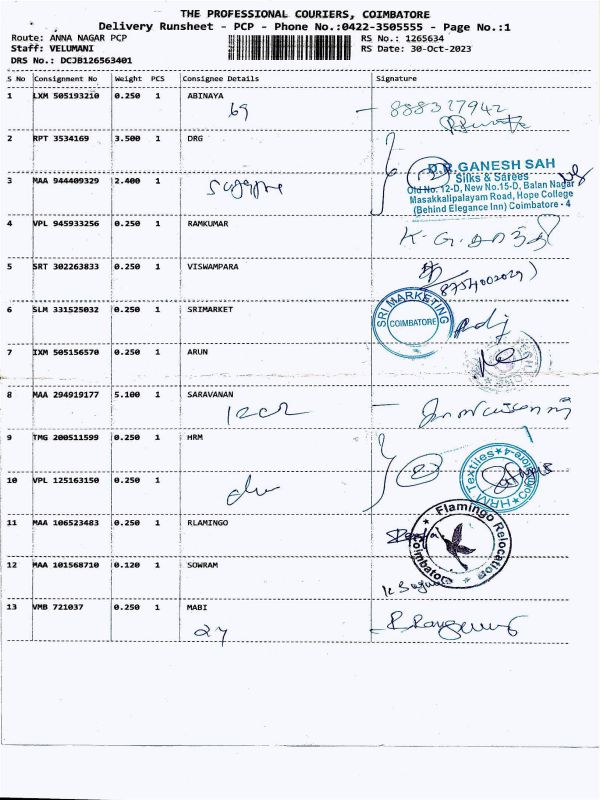 THE PROFESSIONAL COURIERS, COIMBATORE
Delivery Runsheet - PCP - Phone No.:0422-3505555 - Page No.:1
Route: ANNA NAGAR PCP RS No.: 1265634
Staff: VELUMANI RS Date: 30-Oct-2023
DRS No.: DCJB126563401
S No Consignment No Weight PCS Consignee Details Signature
1 LXM 505193210 0.250 1 ABINAYA
69
2 RPT 3534169 3.500 1 DRG
D.R.GANESH SAH
Silks & Sarees
Old No. 12-D, New No.15-D, Balan Nagar
Masakkalipalayam Road, Hope College
(Behind Elegance Inn) Coimbatore - 4
3 MAA 944409329 2.400 1
4 VPL 945933256 0.250 1 RAMKUMAR
5 SRT 302263833 0.250 1 VISWAMPARA
8754002029
6 SLM 331525032 0.250 1 SRIMARKET
SRI MARKETING
COIMBATORE
7 IXM 505156570 0.250 1 ARUN
8 MAA 294919177 5.100 1 SARAVANAN
9 TMG 200511599 0.250 1 HRM
2
HRM Textiles
Coimbatore-4
10 VPL 125163150 0.250 1
11 MAA 106523483 0.250 1 RLAMINGO
Flamingo Relocation
Coimbatore
12 MAA 101568710 0.120 1 SOWRAM
13 VMB 721037 0.250 1 MABI
27